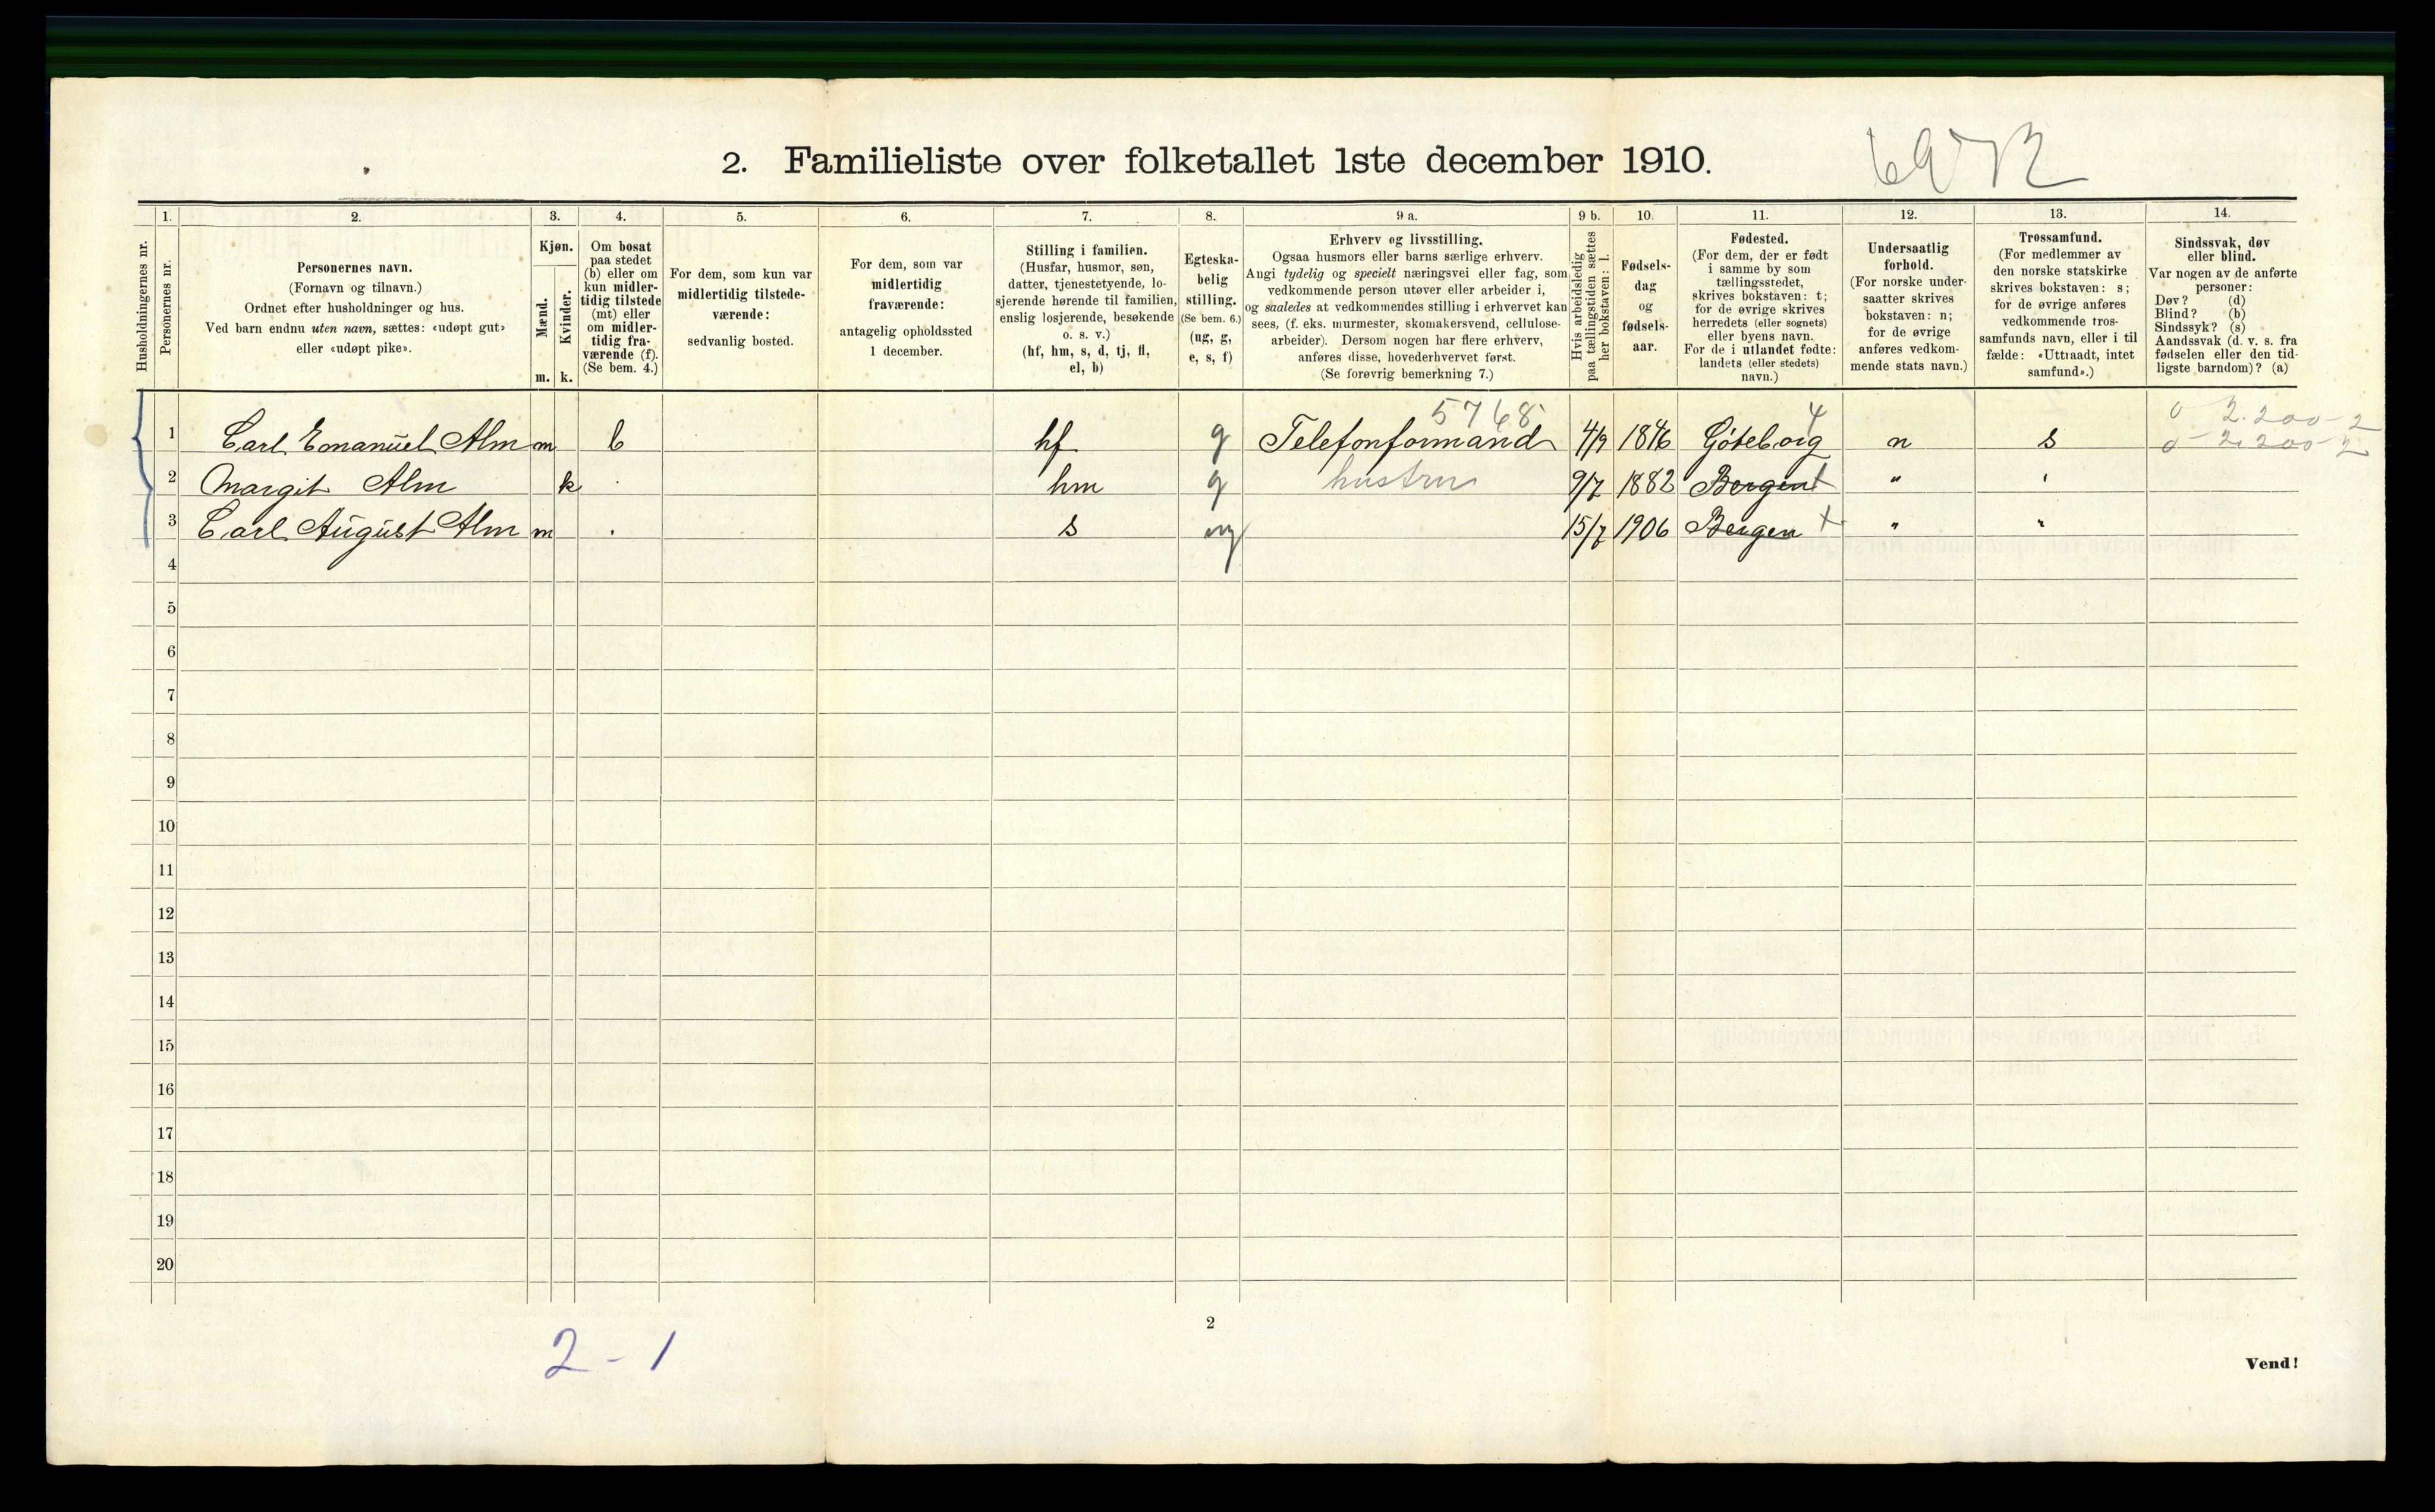 2. Familieliste over folketallet 1ste december 1910.
1. 2. 3. 4. 5. 6. 7. 8. 9 a. 9 b. 10. 11. 12. 13. 14.
Husholdningernes nr.
Personernes nr.
Personernes navn.
(Fornavn og tilnavn.)
Ordnet efter husholdninger og hus.
Ved barn endnu uten navn, sættes: «udøpt gut»
eller «udøpt pike».
Kjøn.
Mænd.
Kvinder.
m. k.
Om bosat
paa stedet
(b) eller om
kun midler-
tidig tilstede
(mt) eller
om midler-
tidig fra-
værende (f).
(Se bem. 4.)
For dem, som kun var
midlertidig tilstede-
værende:
sedvanlig bosted.
For dem, som var
midlertidig
fraværende:
antagelig opholdssted
1 december.
Stilling i familien.
(Husfar, husmor, søn,
datter, tjenestetyende, lo-
sjerende hørende til familien,
enslig losjerende, besøkende
o. s. v.)
(hf, hm, s, d, tj, fl,
el, b)
Egteska-
belig
stilling.
(Se bem. 6.)
(ug, g,
e, s, f)
Erhverv og livsstilling.
Ogsaa husmors eller barns særlige erhverv.
Angi tydelig og specielt næringsvei eller fag, som
vedkommende person utøver eller arbeider i,
og saaledes at vedkommendes stilling i erhvervet kan
sees, (f. eks. murmester, skomakersvend, cellulose-
arbeider). Dersom nogen har flere erhverv,
anføres disse, hovederhvervet først.
(Se forøvrig bemerkning 7.)
Hvis arbeidsledig
paa tællingstiden sættes
her bokstaven: l.
Fødsels-
dag
og
fødsels-
aar.
Fødested.
(For dem, der er født
i samme by som
tællingsstedet,
skrives bokstaven: t;
for de øvrige skrives
herredets (eller sognets)
eller byens navn.
For de i utlandet fødte:
landets (eller stedets)
navn.)
Undersaatlig
forhold.
(For norske under-
saatter skrives
bokstaven: n;
for de øvrige
anføres vedkom-
mende stats navn.)
Trossamfund.
(For medlemmer av
den norske statskirke
skrives bokstaven: s;
for de øvrige anføres
vedkommende tros-
samfunds navn, eller i til
fælde: «Uttraadt, intet
samfund».)
Sindssvak, døv
eller blind.
Var nogen av de anførte
personer:
Døv? (d)
Blind? (b)
Sindssyk? (s)
Aandssvak (d. v. s. fra
fødselen eller den tid-
ligste barndom)? (a)
5768 4 0 2.200-2
1 Carl Emanuel Alm m b hf g Telefonformand 4/9 1846 Göteborg n s 0 - 2.200-2
2 Margit Alm k . hm g hustru 9/7 1882 Bergen t " '
3 Carl August Alm m . s ug 15/7 1906 Bergen t " "
4
5
6
7
8
9
10
11
12
13
14
15
16
17
18
19
20
2
2 - 1
Vend!